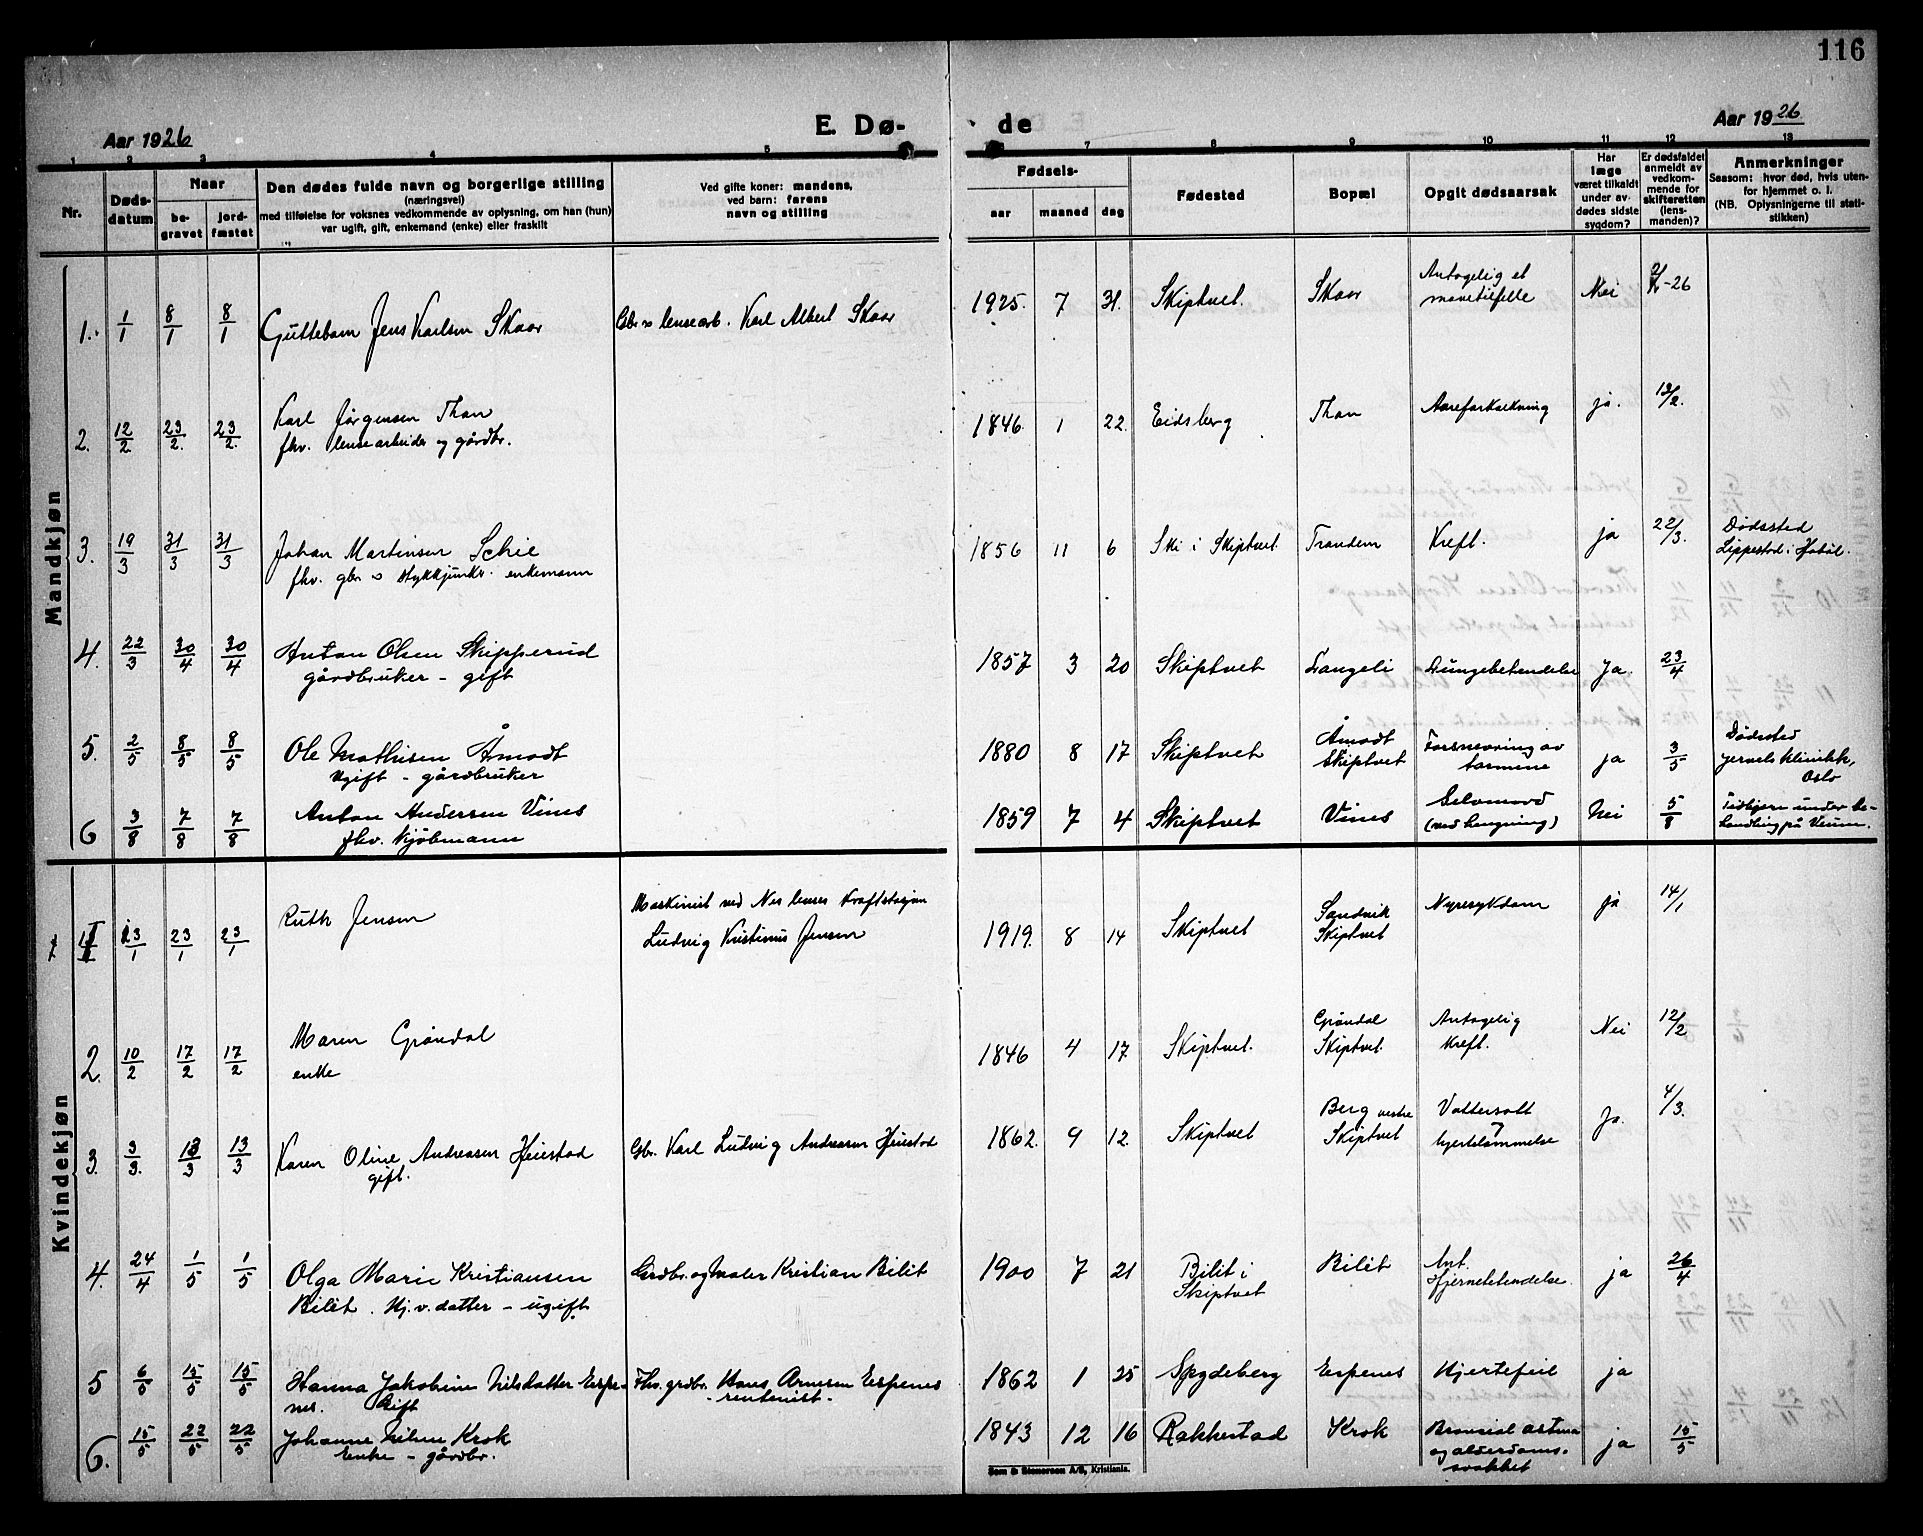 116
Aar 1926
E. Dø-
de
Aar 1926
1 2 3 4 5 7 8 9 10 11 12 13
Nr.
Døds-
datum
Naar
be-
gravet
jord-
fæstet
Den dødes fulde navn og borgerlige stilling
(næringsvei)
med tilføielse for voksnes vedkommende av oplysning, om han (hun)
var ugift, gift, enkemand (enke) eller fraskilt
Ved gifte koner: mandens,
ved barn: farens
navn og stilling
Fødsels-
aar maaned dag
Fødested
Bopæl
Opgit dødsaarsak
Har
læge
været tilkaldt
under av-
dødes sidste
sygdom?
Er dødsfaldet
anmeldt av
vedkom-
mende for
skifteretten
(lens-
manden)?
Anmerkninger
Saasom: hvor død, hvis uten-
for hjemmet o. l.
(NB. Oplysningerne til stati-
stikken)
Mandkjøn
1. 1/1 8/1 8/1 Guttebarn Jens Karlsen Skaar Gbr. & lensearb. Karl Albert Skaar 1925. 7 31. Skiptvet. Skaar Antagelig et Nei -26
mavetilfelle
2. 12/2 23/2. 23/2. Karl Jørgensen Than 1846 1 22. Eidsberg Than Aareforkalkning ja. 13/2.
fhv. lensearbeider og gårdbr.
3. 19/3 31/3 31/3 Johan Martinsen Schie 1856 11 6 Ski i Skiptvet Trandem Kreft. ja 22/3. Dødssted
fhv. gbr. & stykkjunkr. enkemann Lippestad i Hobøl.
4. 22/3 30/4 30/4 Anton Olsen Skipperud 1857 3 20 Skiptvet Langeli Lungebetendelse ja 23/4
gårdbruker - gift
5. 2/5 8/5 8/5 Ole Mathisen Åmodt 1880 8 17 Skiptvet Åmodt Forsnevring av ja 3/5 Dødssted
Ugift - gårdbruker Skiptvet tarmene Jervels klinikk,
Oslo
6 3/8 7/8 7/8 Anton Andersen Vines 1859 7 4 Skiptvet Vines Selvmord Nei 5/8 Tidligere under be-
fhv. kjøbmann (ved hengning) handling på Veum.
Kvindekjøn
1 13/1 23/1 23/1 Ruth Jensen Maskinist ved Nes lenses Kraftstasjon 1919. 8 14 Skiptvet Sandvik Nyresykdom ja 14/1
Ludvig Kristinus Jensen Skiptvet
2. 10/2 17/2 17/2 Maren Grøndal 1846 4 17 Skiptvet. Grøndal Antagelig Nei 12/2
enke Skiptvet kreft.
3. 3/3. 13/3 13/3 Karen Oline Andreasen Heiestad Gbr. Karl Ludvig Andreasen Heiestad 1862. 9 12. Skiptvet Berg vestre Vattersott Ja. 4/3.
gift. Skiptvet hjertelammelse
4. 24/4 1/5 1/5 Olga Marie Kristiansen Gårdbr. og maler Kristian Bilit 1900 7 21 Bilit i Bilit Ant. ja 26/4
Bilit. Hj.v. datter - ugift Skiptvet Hjernebetendelse.
5 6/5 15/5 15/5 Hanna Jakobine Nilsdatter Espe- Fhv. grdbr. Hans Arnesen Espenes 1862 1 25 Spydeberg Espenes Hjertefeil ja
nes. Gift - rentenist -
6. 15/5 22/5 22/5 Johanne Nilsen Krok 1843 12 16 Rakkestad Krok Bronsial astma ja 15/5
Enke - gårdbr. og alderdoms-
svakhet
Sem & Stenersen A/S, Kristiania.